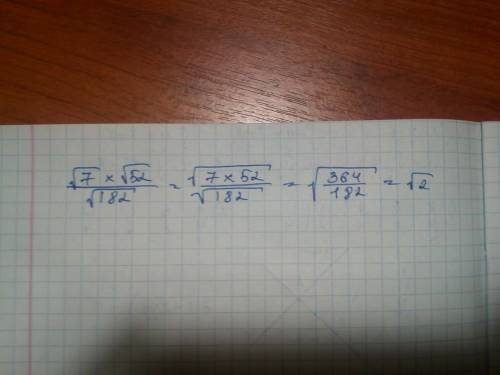 √7 × √52 / √182 = √(7 × 52) / √182 = √(364 / 182) = √2